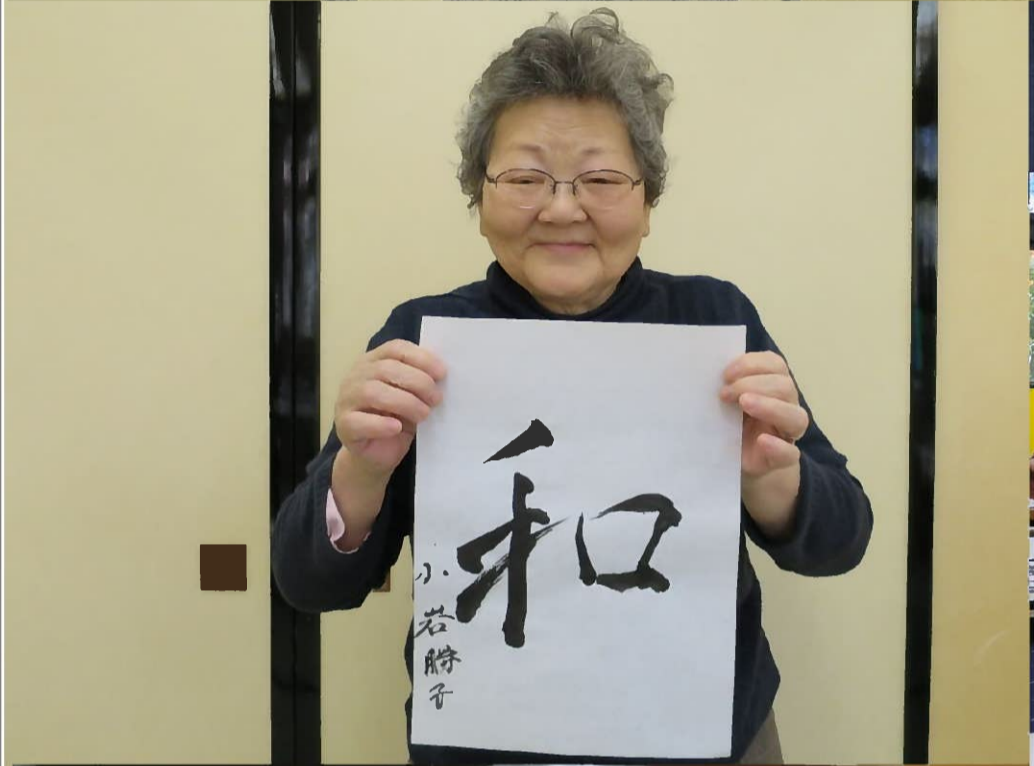 和
小岩勝子